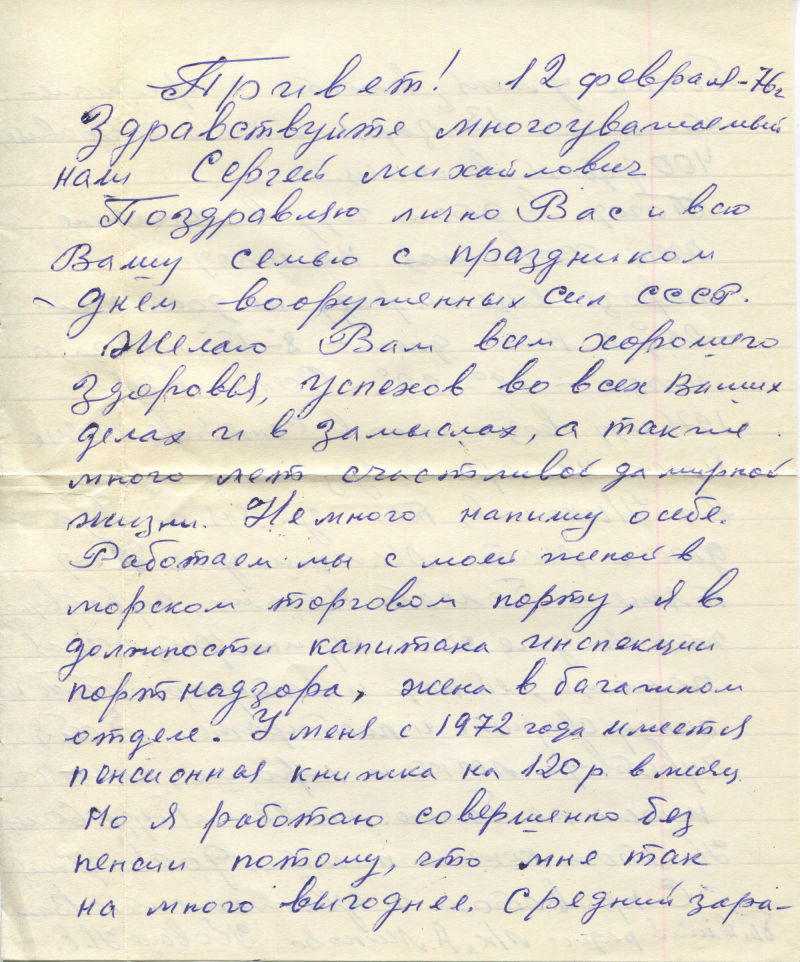 Привет! 12 февраля-76г
Здравствуйте многоуважаемый
наш Сергей Михайлович
Поздравляю лично Вас и всю
Вашу семью с праздником
- днём вооруженных сил СССР.
Желаю Вам всем хорошего
здоровья, успехов во всех Ваших
делах и в замыслах, а также
много лет счастливой да мирной
жизни. Немного напишу о себе.
Работаем мы с моей женой в
морском торговом порту, я в
должности капитана инспекции
портнадзора, жена в багажном
отделе. У меня с 1972 года имеется
пенсионная книжка на 120 р. в месяц
Но я работаю совершенно без
пенсии потому, что мне так
на много выгоднее. Средний зара-